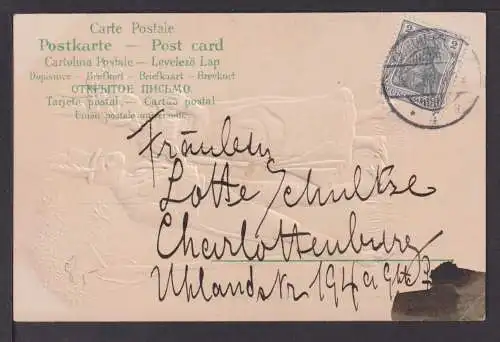 Carte Postale
Postkarte — Post card
Cartolina Postale — Levelező Lap
Dopisnice — Brefkort — Briefkaart — Brevkort
ОТКРЫТОЕ ПИСЬМО.
Tarjeta postal — Cartao postal
Union postale universelle.
2 2
Fräulein
Lotte Schultze
Charlottenburg
Uhlandstr 194a